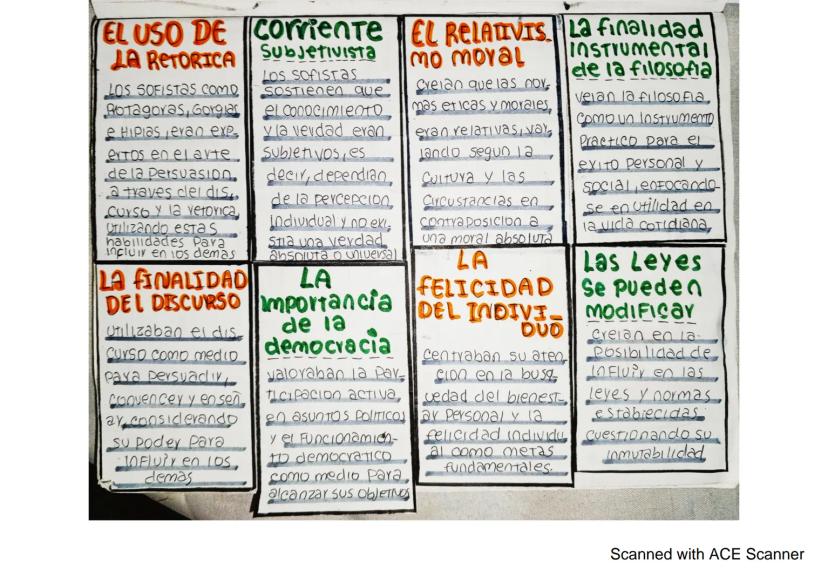 EL USO DE
LA RETORICA
LOS SOFISTAS COMO
Protagoras, Gorgias
e HIPIAS, eran exp-
ertos en el arte
de la Persuasion
a traves del dis,
curso y la retorica,
utilizando estas
habilidades Para
influir en los demas
corriente
Subjetivista
LOS SOFISTAS
sostienen que
el conocimiento
y la verdad eran
subjetivos, es
decir, dependian
de la percepcion
individual y no exi-
stia una verdad
absoluta o universal
EL RELATIVIS-
MO MORAL
creian que las nor-
mas eticas y morales
eran relativas, var-
iando segun la
cultura y las
circustancias en
contraposicion a
una moral absoluta
La finalidad
instrumental
de la filosofia
veian la filosofia
como un instrumento
Practico para el
exito Personal y
social, enfocando-
se en utilidad en
la vida cotidiana,
LA FINALIDAD
DEL DISCURSO
utilizaban el dis,
curso como medio
para persuadir,
convencer y enseñ
ar, considerando
su poder para
influir en los,
demas
LA
importancia
de la
democracia
valoraban la Par-
ticipacion activa,
en asuntos politicos
y el funcionamien-
to democratico
como medio para,
alcanzar sus objetivos
LA
FELICIDAD
DEL INDIVI-
DUO
centraban su aten,
cion en la busq
uedad del bienest-
ar personal y la
felicidad individu
al como metas
fundamentales.
Las Leyes
se pueden
modificar
creian en la
Posibilidad de
influir en las
leyes y normas
establecidas
cuestionando su
inmutabilidad
Scanned with ACE Scanner